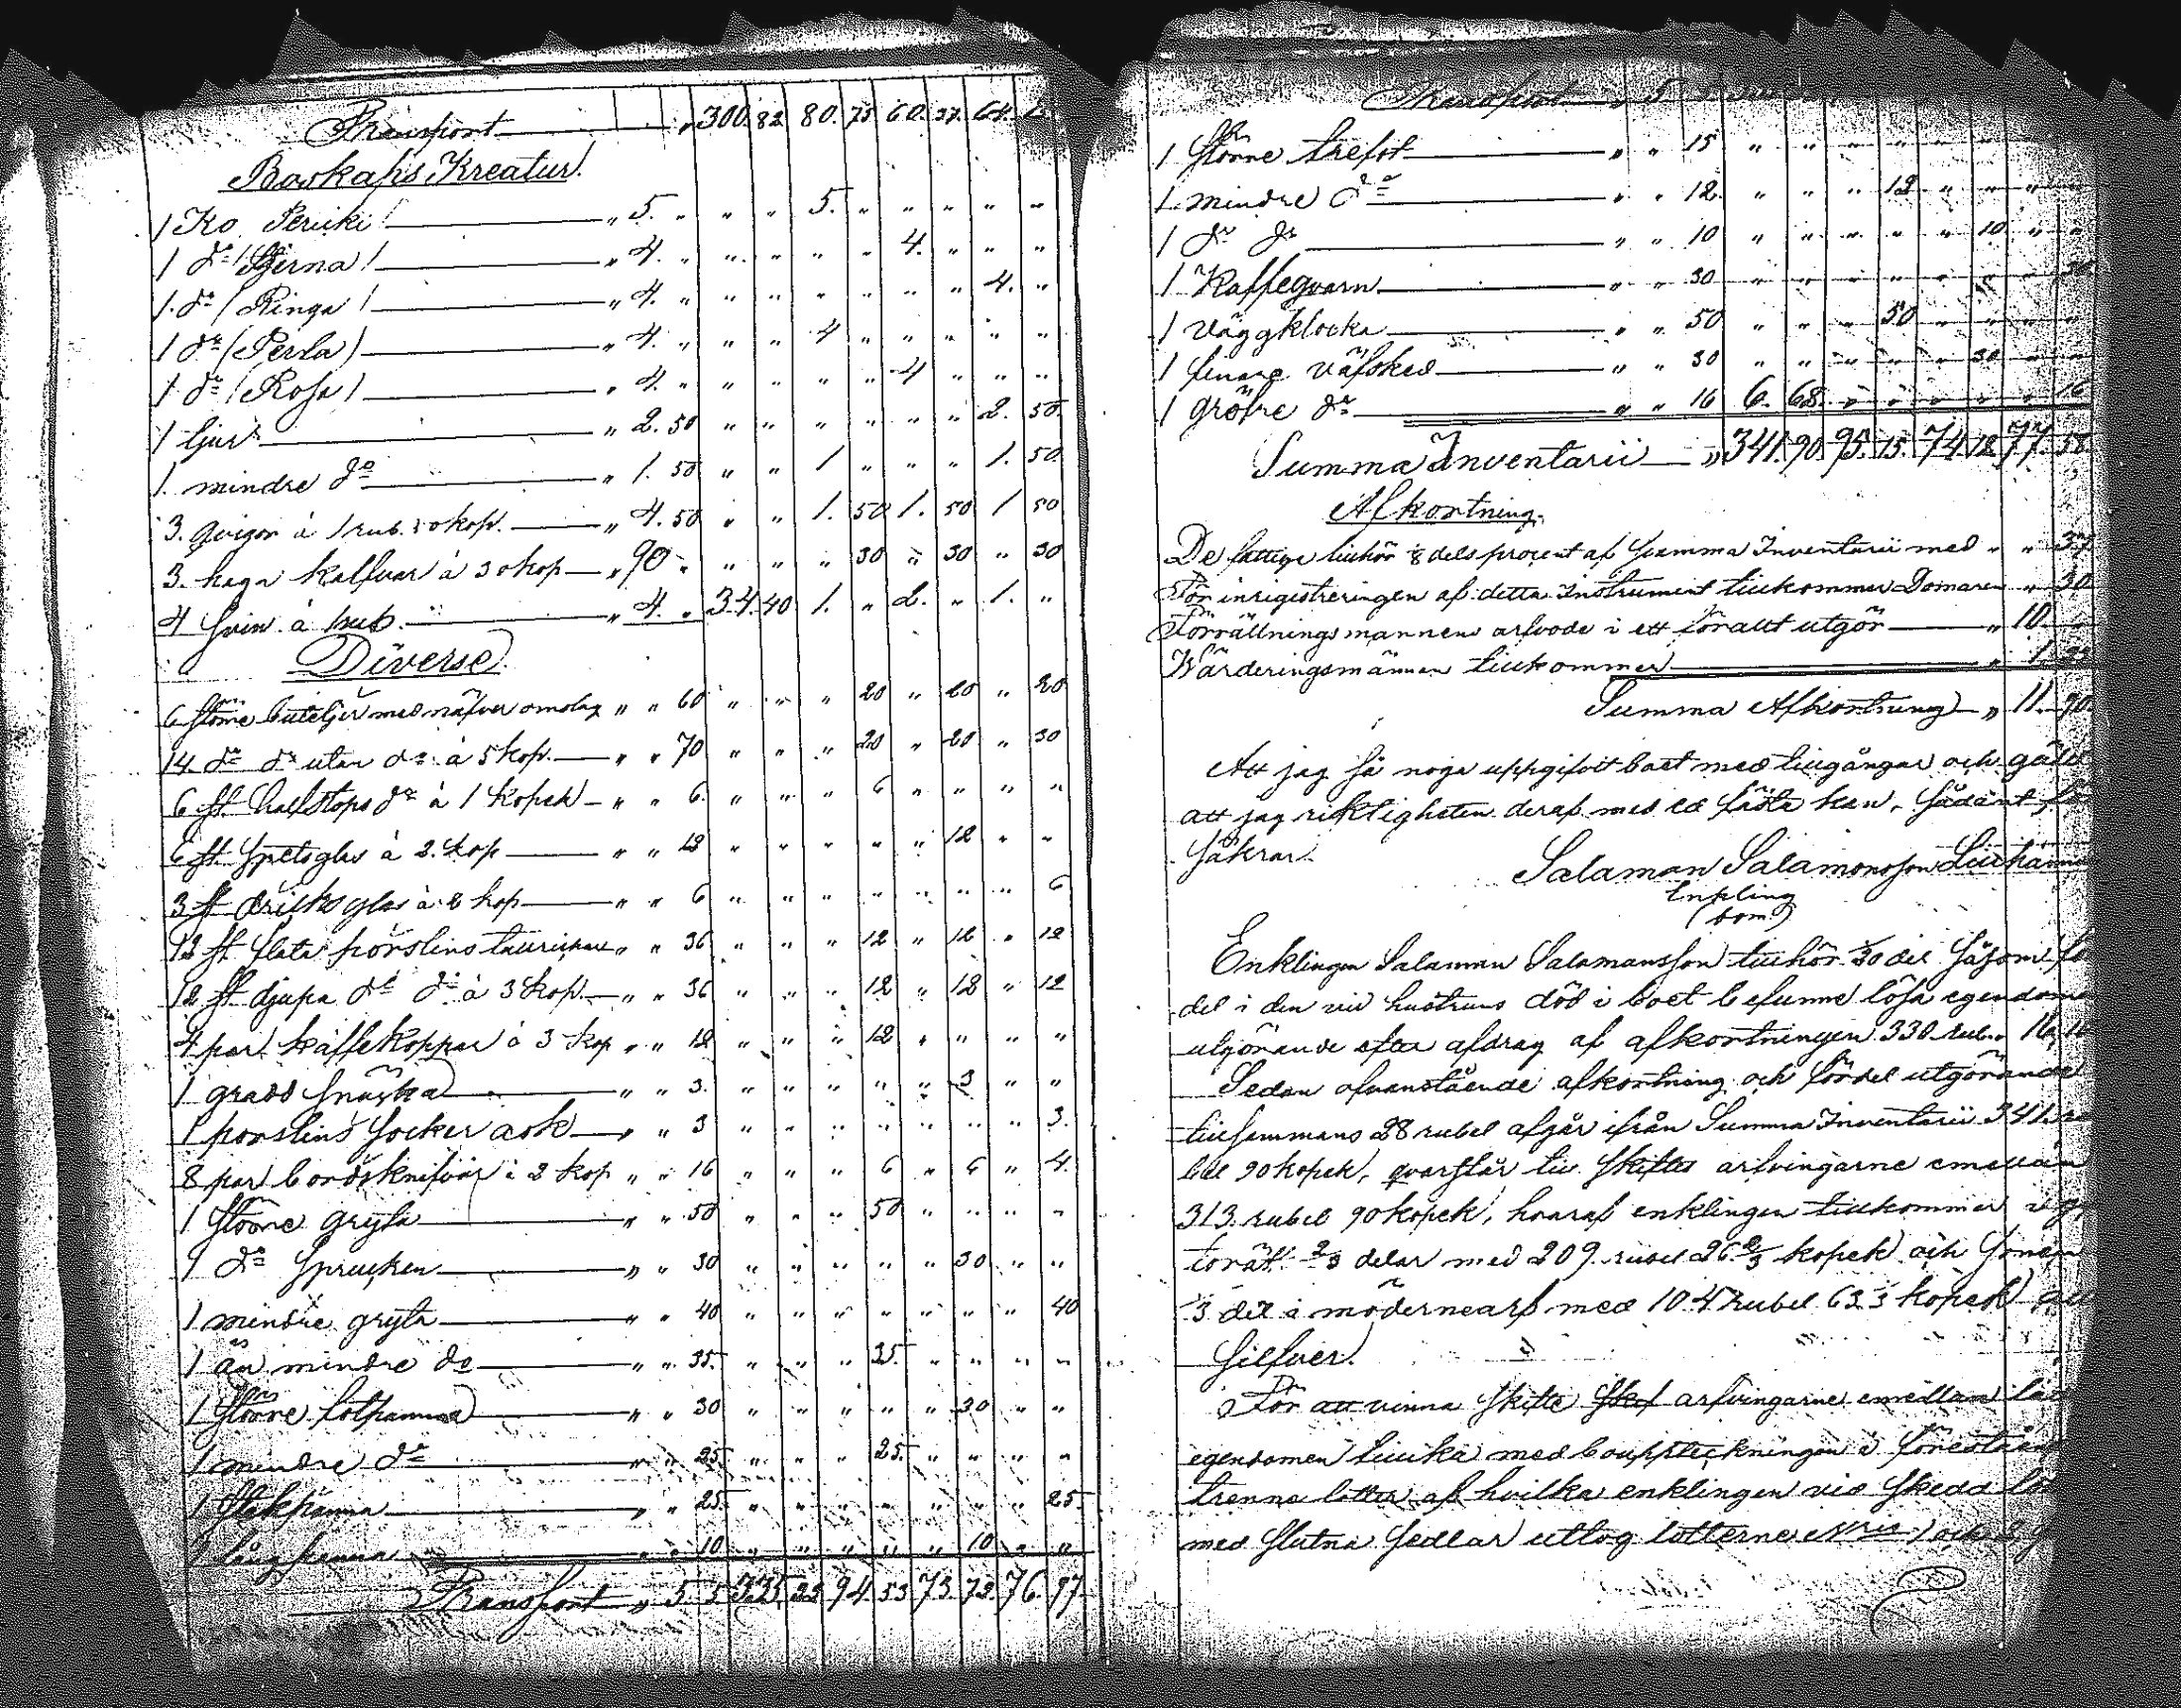 Transport " 300. 82 80. 75 60. 37. 64.
Boskaps Kreatur.
1 Ko " 5. " " " 5. " " " " "
1 do (Stjerna) " 4. " " " " " 4. " " "
1 do (Ringa) " 4. " " " " " " " 4. "
1 do (Perla) " 4. " " " 4 " " " " "
1 do (Rosa) " 4. " " " " " 4 " " "
1 tjur " 2. 50 " " " " " " 2. 50.
1 mindre do " 1. 50 " " 1 " " " 1. 50.
3. qvigor à 1 rub. 50 kop. " 4. 50 " " 1. 50 1. 50 1 50
3. kalfvar à 30 kop " 90 " " " " 30 " 30 " 30
4 svin à 1 rub. " 4. " 34. 40 1. " 2. " 1. "
Diverse.
6 större buteljer med näfver omslag " " 60 " " " 20 " 20 " 20
14. do do utan do à 5 kop. " " 70 " " " 20 " 20 " 30
6 st halfstops do à 1 kopek " " 6. " " " 6 " " " "
6 st spetsglas à 2. kop " " 12 " " " " " 12 " "
3 st dricks glas à 2 kop " " 6 " " " " " " " 6
12 st flata porslins tallrickar " " 36 " " " 12 " 12 " 12
12 st djupa do do à 3 kop. " " 36 " " " 12 " 12 " 12
4 par kaffekoppar à 3 kop " " 12 " " " 12 " " " "
1 gradd snäcka " " 3. " " " " " 3 " "
1 porslins socker ask " " 3 " " " " " " " 3.
8 par bordsknifvar à 2 kop " " 16 " " " 6 " 6 " 4.
1 större gryta " " 50 " " " 50 " " " "
1 do sprucken " " 30 " " " " " 30 " "
1 mindre gryta " " 40 " " " " " " " 40
1 än mindre do " " 35. " " " 35. " " " "
1 större " " 30 " " " " " 30 " "
1 mindre do " " 25. " " " 25. " " " "
1 stekpanna " " 25. " " " " " " " 25.
1 " " 10 " " " " " 10 " "
Transport " 5. 5 335. 22 94. 53 73. 72. 76. 97.
Transport " 5
1 större trefot " " 15 " " " " " " "
1 mindre do " " 12. " " " 12 " " " "
1 do do " " 10 " " " " " 10 " "
1 Kaffeqvarn " " 30 " " " " " " " 30
1 väggklocka " " 50 " " " 50 " " " "
1 finare väfsked " " 30 " " " " " 30 " "
1 gröfre do " " 16 6. 68. " " " " " 16
Summa Inventarii " 341. 90. 95. 15. 74. 12 77. 58
Afkortning.
De fattige tillhör 1/8 dels procent af Summa Inventarii med " " 37
För inrigistreringen af detta Instrument tillkommer Domaren " 30
Förrättningsmannens arfvode i ett föralt utgör " 10.
Wärderingsmännen tillkommer " 1.
Summa Afkortning " 11. 90.
Att jag så noga uppgifvit boet med tillgångar och gäld
att jag riktigheten deraf med ed fästa kan, sådant
säkrar.
Salaman Salamonsson
Enkling
(bom.)
Enklingen Salaman Salamansson tillhör 1/20 del såsom
del i den vid hustruns död i boet befunne lösa egendom
utgörande efter afdrag af afkortningen 330 rub.
Sedan ofvanstående afkortning och fördel utgörande
tillsammans 28 rubel afgår ifrån Summa Inventarii 341
bel 90 kopek, qvarstår till skiftes arfvingarne emellan
313. rubel 90 kopek, hvaraf enklingen tillkommer i
torätt 2/3 delar med 209. rubel 26 2/3 kopek och
1/3 del i mödernearf med 104 rubel 63 1/3 kopek
Silfver.
För att vinna skifte arfvingarne emellan
egendomen lika med bouppteckningen i
trenne lotter af hvilka enklingen vid skedd
med slutna sedlar uttog lotterne No 1 och 2